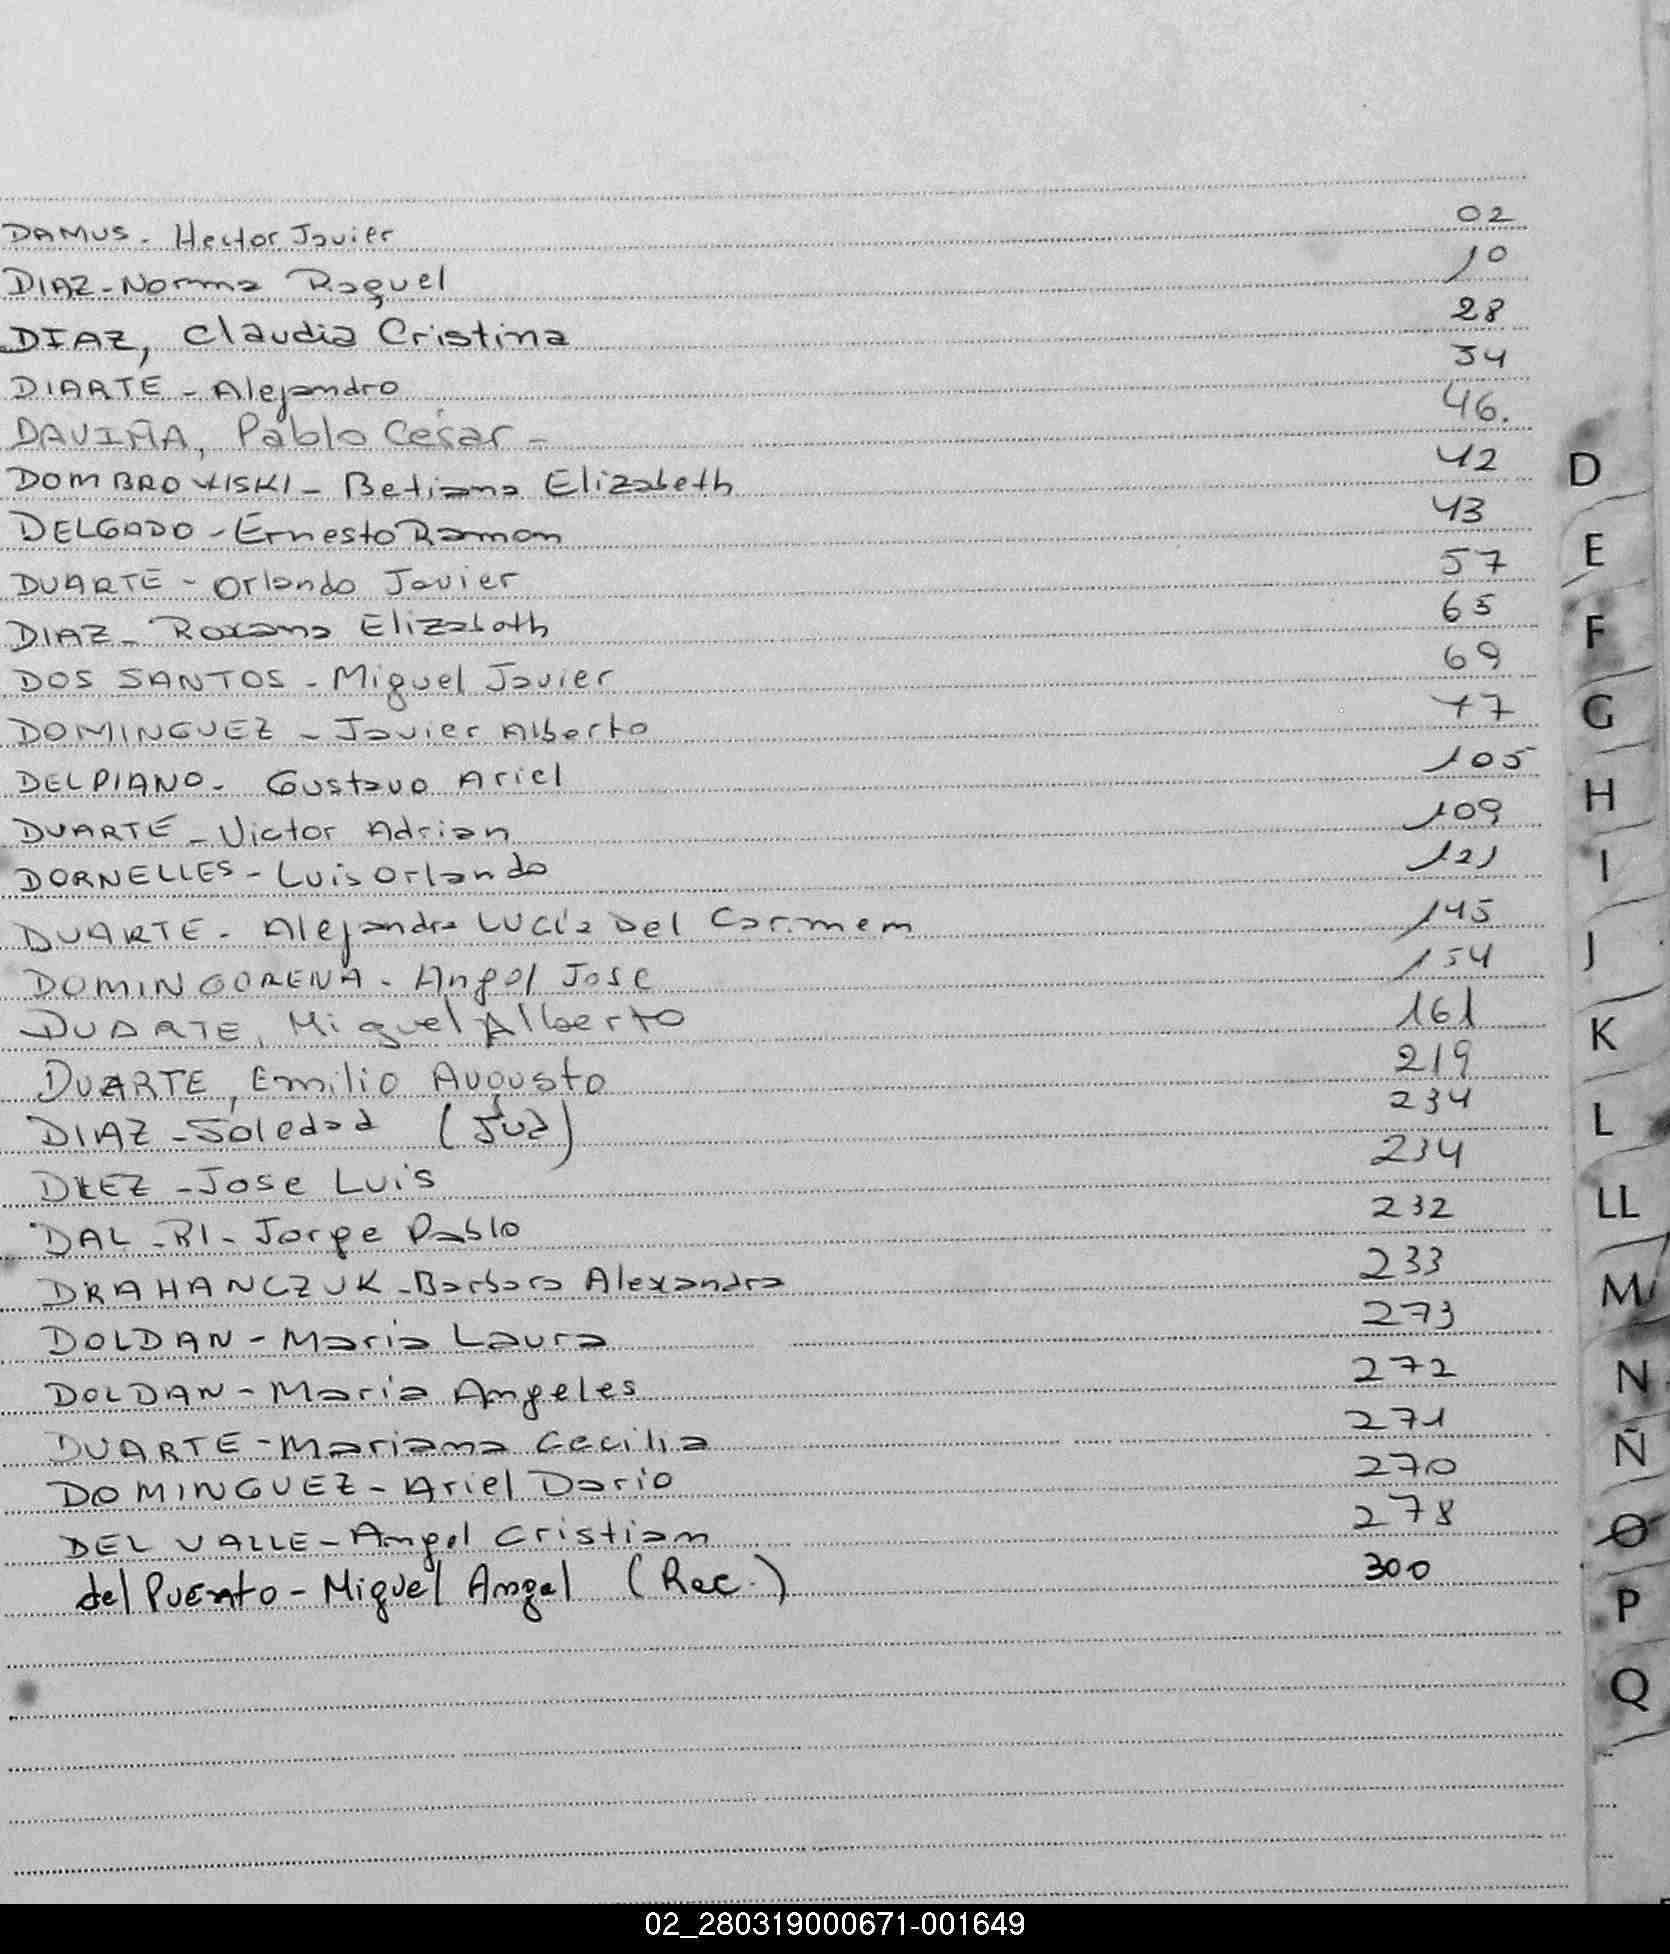 DAMUS - Hector Javier 02
DIAZ - Norma Raquel 10
DIAZ, Claudia Cristina 28
DIARTE - Alejandro 34
DAVIÑA, Pablo César - 46.
DOMBROWISKI - Betiana Elizabeth 42
DELGADO - Ernesto Ramon 43
DUARTE - Orlando Javier 57
DIAZ - Roxana Elizabeth 65
DOS SANTOS - Miguel Javier 69
DOMINGUEZ - Javier Alberto 77
DELPIANO - Gustavo Ariel 105
DUARTE - Victor Adrian 109
DORNELLES - Luis Orlando 121
DUARTE - Alejandra LUCía Del Carmem 145
DOMINGORENA - Angel Jose 154
DUARTE, Miguel Alberto 161
DUARTE, Emilio Augusto 219
DIAZ - Soledad 234
DIEZ - Jose Luis 234
DAL - RI - Jorge Pablo 232
DRAHANCZUK - Barbara Alexandra 233
DOLDAN - Maria Laura 273
DOLDAN - Maria Angeles 272
DUARTE - Mariana Cecilia 271
DOMINGUEZ - Ariel Dario 270
DEL VALLE - Angel Cristian 278
del Puerto - Miguel Angel (Rec.) 300
D
E
F
G
H
I
J
K
L
LL
M
N
Ñ
O
P
Q
02_280319000671-001649